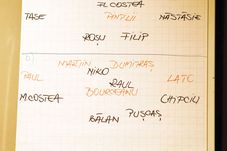 FL COSTEA
TASE PINTILII NĂSTĂSIE
ROȘU FILIP
MARTIN DUMITRAȘ
MIKO
PAUL RAUL LATO
BOURCEANU
M.COSTEA CHIPCIU
BĂLAN PUȘCAȘ